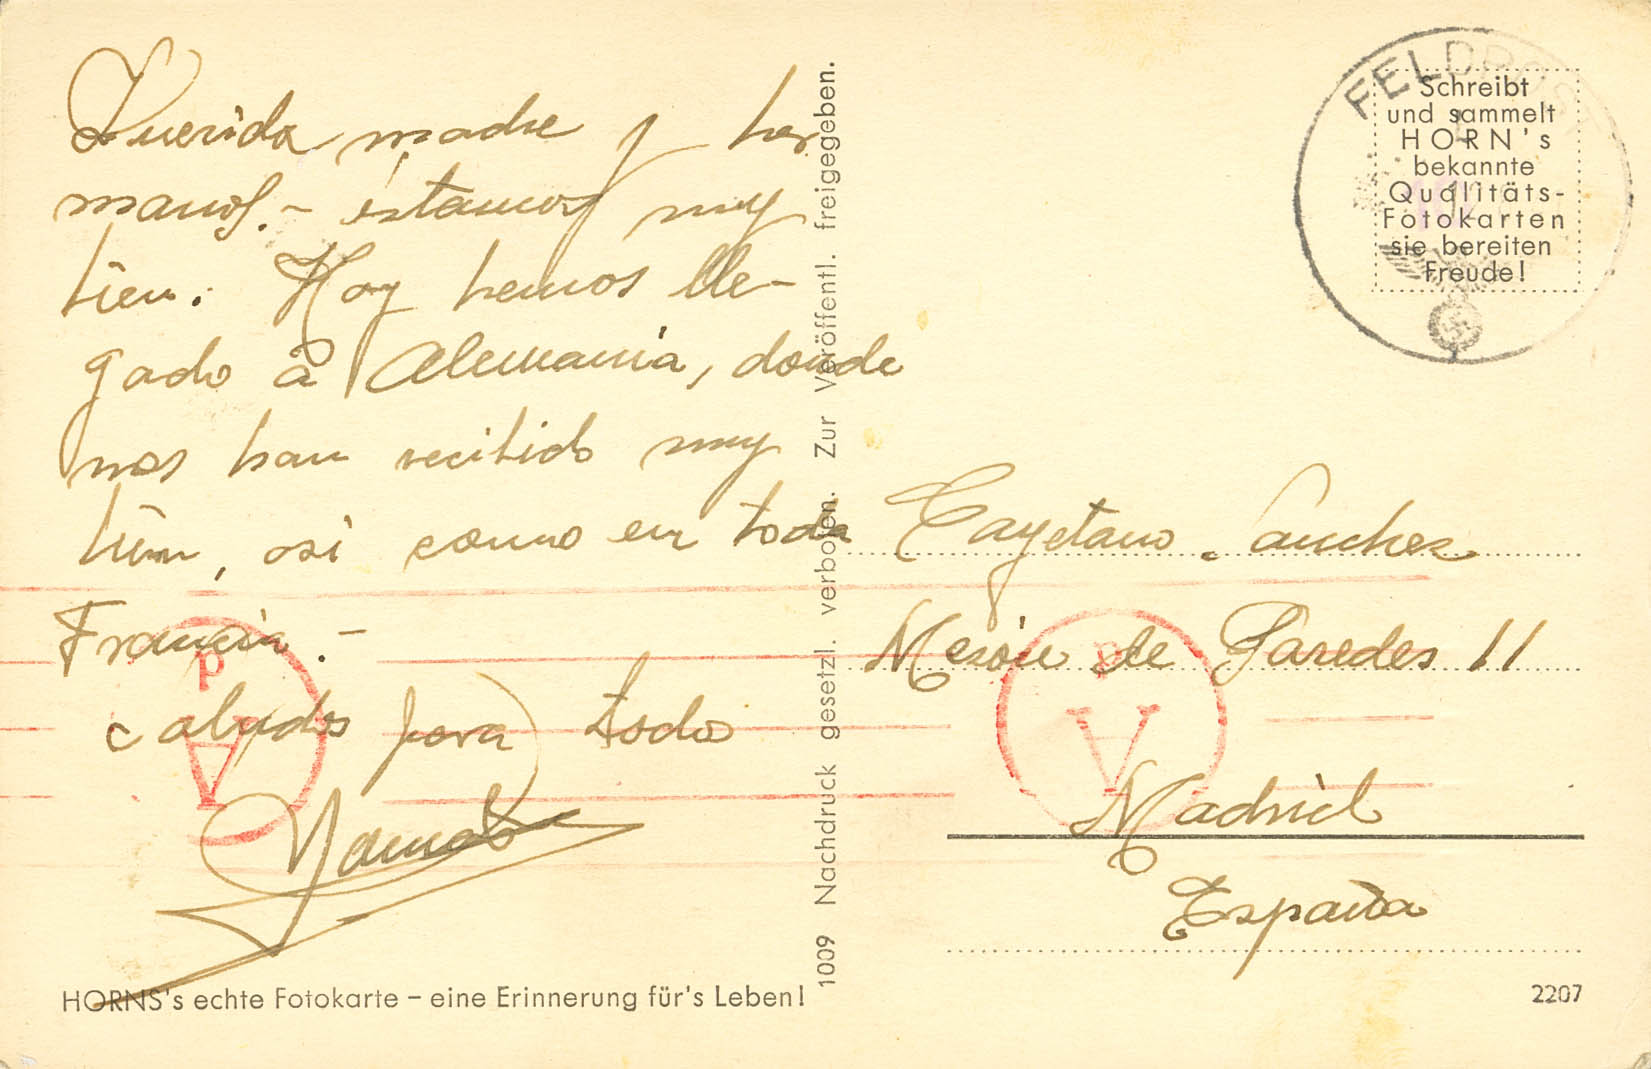 Querida madre y her
manos.- éstamos muy
bien. Hoy hemos lle-
gado á Alemania, donde
nos han recibido muy
bien, asi como en toda
Francia.-
Saludos para todo
HORNS's echte Fotokarte – eine Erinnerung für's Leben!
1009 Nachdruck gesetzl. verboten. Zur Veröffentl. freigegeben.
FELDPOST
Schreibt
und sammelt
HORN's
bekannte
Qualitäts-
Fotokarten
sie bereiten
Freude!
Cayetano Sanchez
Mesón de Paredes 11
Madrid
España
2207
p
A
p
A